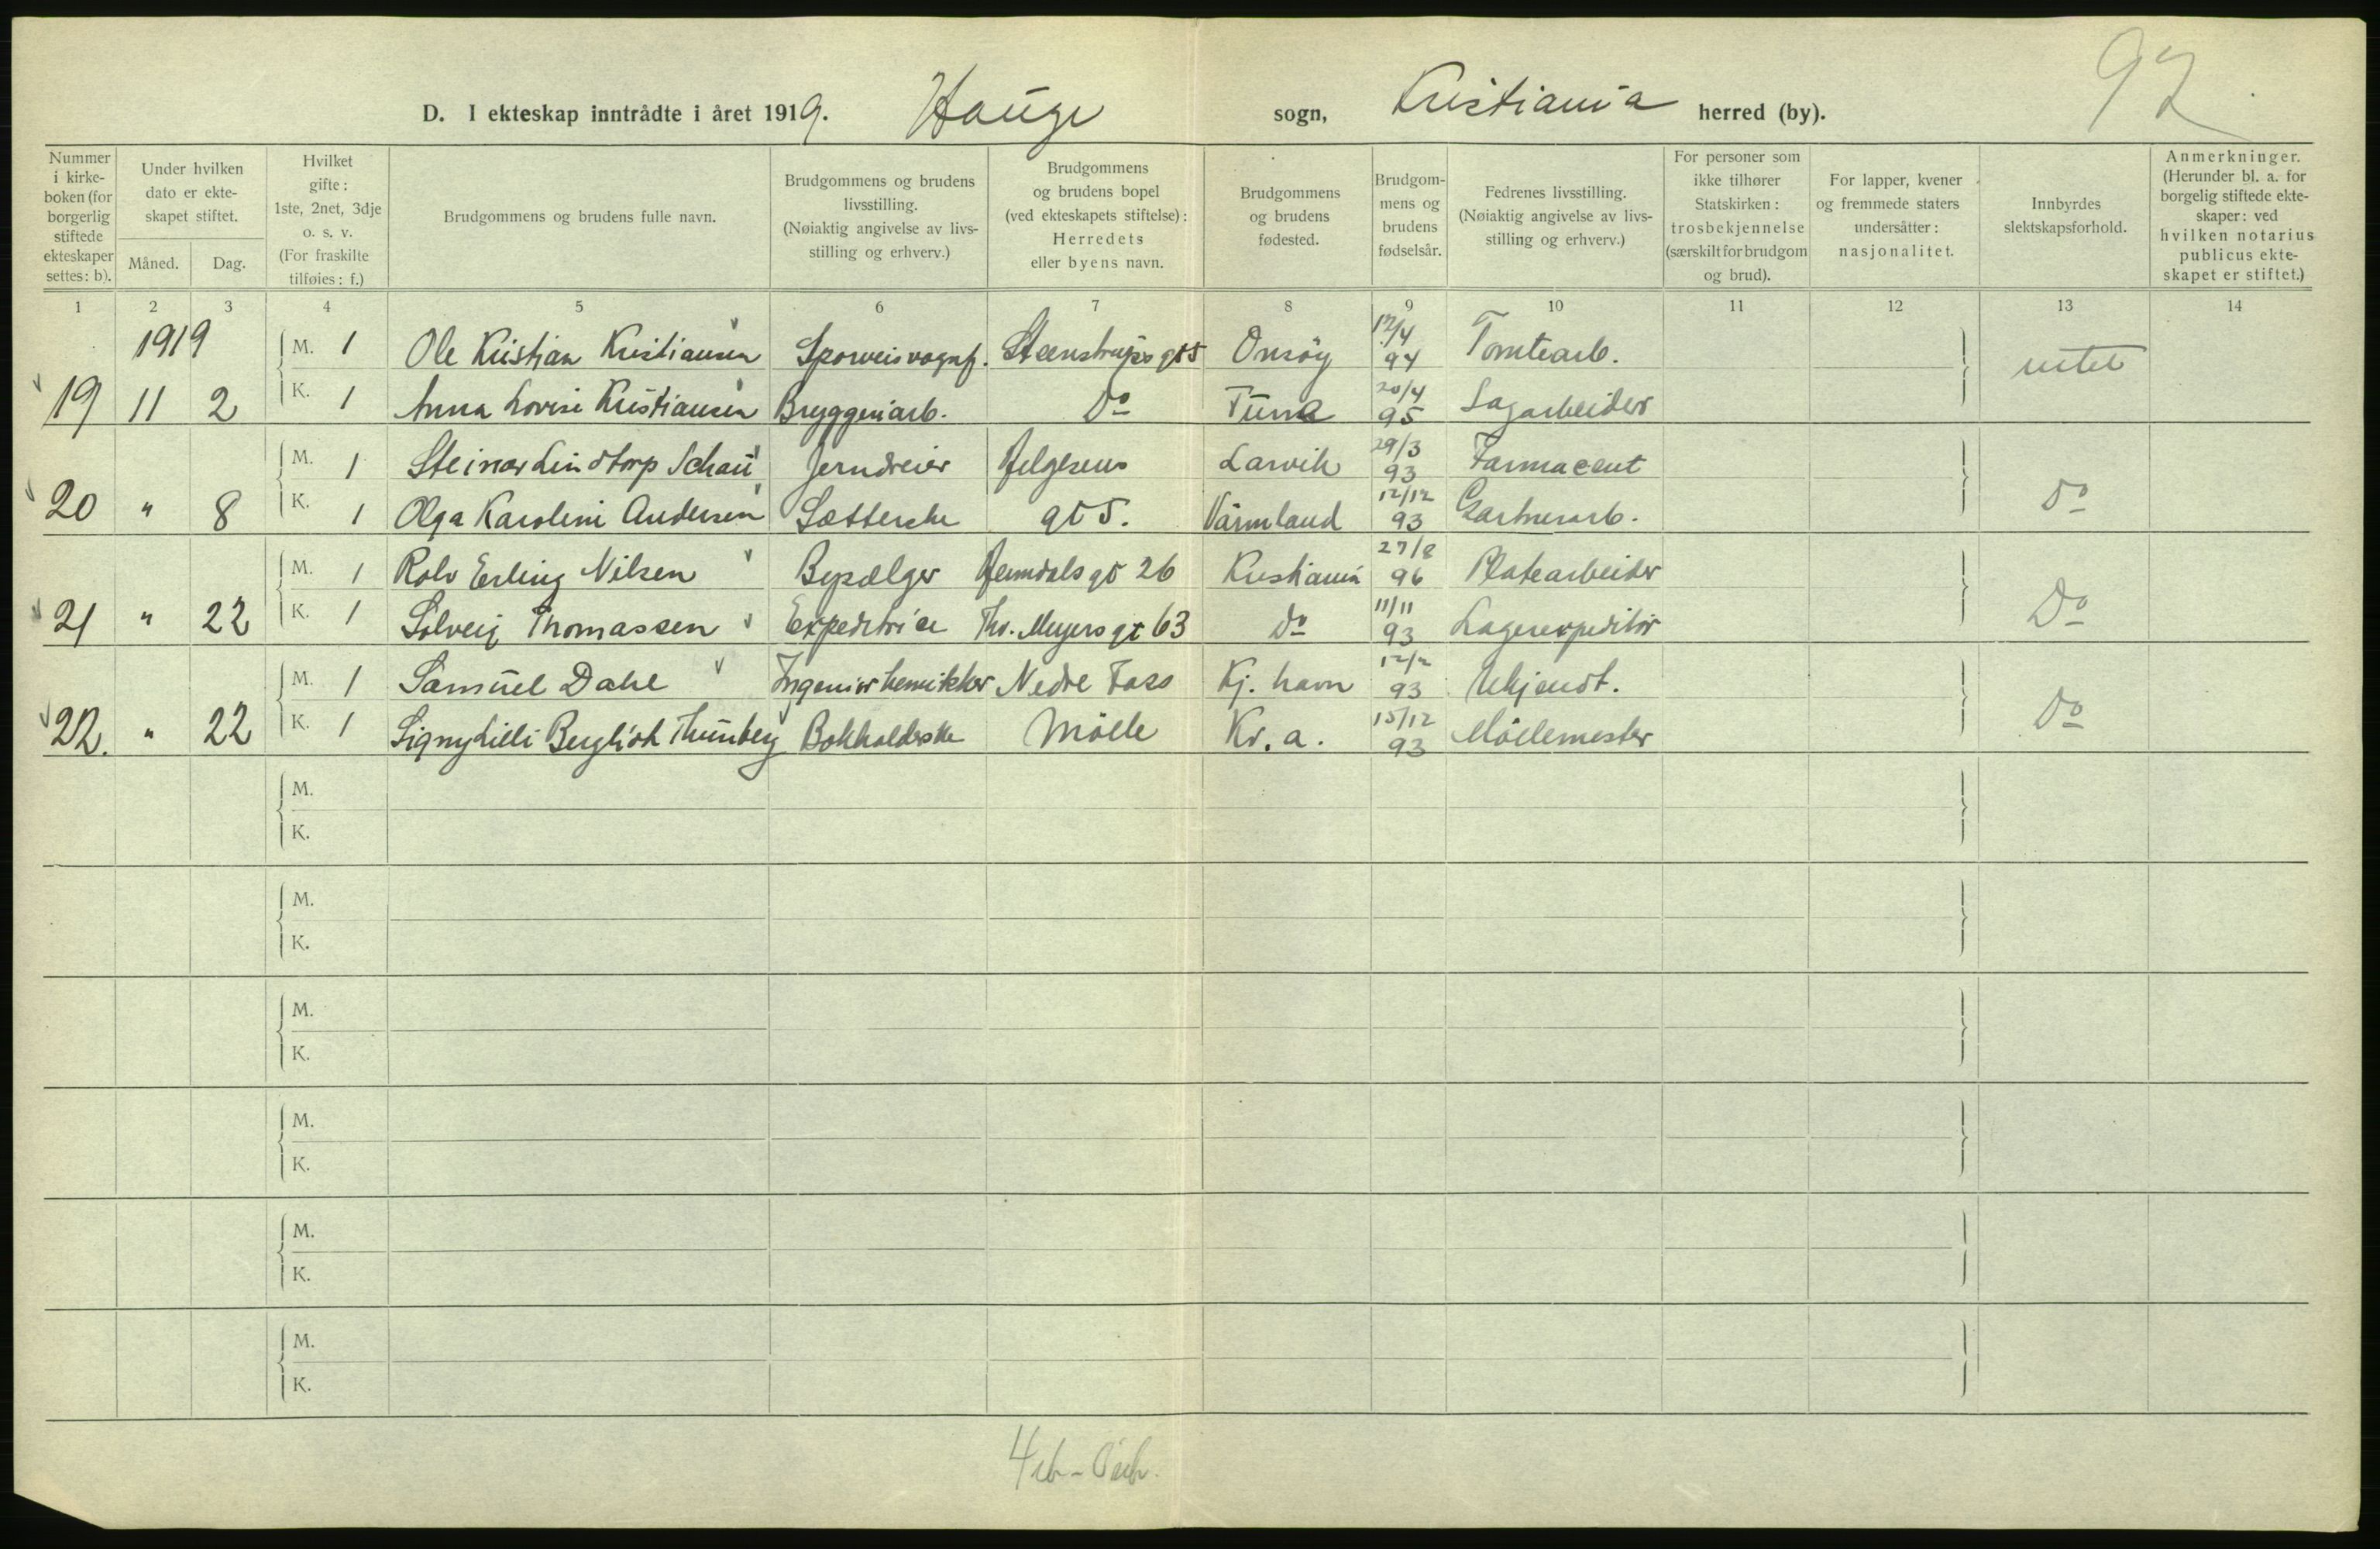 92
D. I ekteskap inntrådte i året 1919. Hauge sogn, Kristiania herred (by).
Nummer i kirkeboken (for borgerlig stiftede ekteskaper settes: b).
Under hvilken dato er ekteskapet stiftet.
Måned. Dag.
Hvilket gifte: 1ste, 2net, 3dje o. s. v. (For fraskilte tilføies: f.)
Brudgommens og brudens fulle navn.
Brudgommens og brudens livsstilling. (Nøiaktig angivelse av livsstilling og erhverv.)
Brudgommens og brudens bopel (ved ekteskapets stiftelse): Herredets eller byens navn.
Brudgommens og brudens fødested.
Brudgommens og brudens fødselsår.
Fedrenes livsstilling. (Nøiaktig angivelse av livsstilling og erhverv.)
For personer som ikke tilhører Statskirken: trosbekjennelse (særskilt for brudgom og brud).
For lapper, kvener og fremmede staters undersåtter: nasjonalitet.
Innbyrdes slektskapsforhold.
Anmerkninger. (Herunder bl. a. for borgelig stiftede ekteskaper: ved hvilken notarius publicus ekteskapet er stiftet.)
1 2 3 4 5 6 7 8 9 10 11 12 13 14
1919 M. 1 Ole Kristian Kristiansen Sporveisvognf. Steenstrups gt 5 Onsöy /4 94 Tomtearb. intet
19 11 2 K. 1 Anna Lovise Kristiansen Bryggeriarb. Do Tune 20/4 95 Sagarbeider
M. 1 Steinar Lindtorp Schau Jerndreier Helgesens Larvik 29/3 93 Farmaceut
20 " 8 K. 1 Olga Karoline Andersen Sætterske gt 5. Värmland 12/12 93 Gartnerarb. Do
M. 1 Rolv Erling Nilsen Bysælger Heimdals gt 26 Kristiania 27/8 96 Platearbeider
21 " 22 K. 1 Solveig Thomassen Expeditrice Thv. Meyers gt 63 Do 11/11 93 Lagerexpeditör Do
M. 1 Samüel Dahl Ingeniør kemikker Nedre Foss Kj. havn 12/2 93 Ukjendt.
22. " 22 K. 1 Signy Lilli Bergliot Thunberg Bokholderske Mölle Kr. a. 15/12 93 Möllemester Do
M.
K.
M.
K.
M.
K.
M.
K.
M.
K.
M.
K.